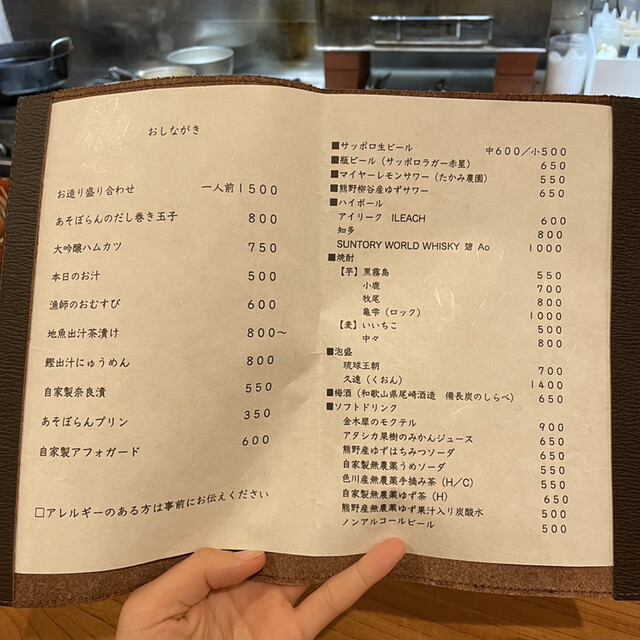 おしながき
お造り盛り合わせ 一人前1500
あそぼらんのだし巻き玉子 800
大吟醸ハムカツ 750
本日のお汁 500
漁師のおむすび 600
地魚出汁茶漬け 800〜
鰹出汁にゅうめん 800
自家製奈良漬 550
あそぼらんプリン 350
自家製アフォガード 600
□アレルギーのある方は事前にお伝えください
■サッポロ生ビール 中600/小500
■瓶ビール（サッポロラガー赤星） 650
■マイヤーレモンサワー（たかみ農園） 550
■熊野柳谷産ゆずサワー 650
■ハイボール
アイリーク ILEACH 600
知多 800
SUNTORY WORLD WHISKY 碧 Ao 1000
■焼酎
【芋】黒霧島 550
小鹿 700
牧尾 800
亀雫（ロック） 1000
【麦】いいちこ 500
中々 800
■泡盛
琉球王朝 700
久遠（くおん） 1400
■梅酒（和歌山県尾崎酒造 備長炭のしらべ） 650
■ソフトドリンク
金木犀のモクテル 900
アタシカ果樹のみかんジュース 650
熊野産ゆずはちみつソーダ 650
自家製無農薬うめソーダ 550
色川産無農薬手摘み茶（H/C） 550
自家製無農薬ゆず茶（H） 650
熊野産無農薬ゆず果汁入り炭酸水 500
ノンアルコールビール 500